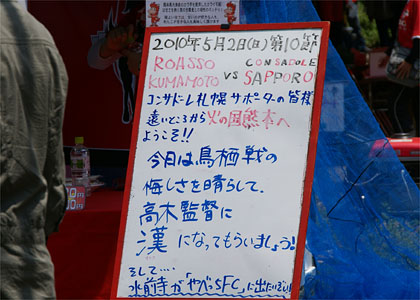 2010年5月2日(日)第10節
ROASSO KUMAMOTO vs CONSADOLE SAPPORO
コンサドーレ札幌サポーターの皆様
遠いところから火の国熊本へ
ようこそ!!
今日は鳥栖戦の
悔しさを晴らして、
高木監督に
漢になってもらいましょう!
そして…
水前寺が「やべっちFC」に出たいばい!